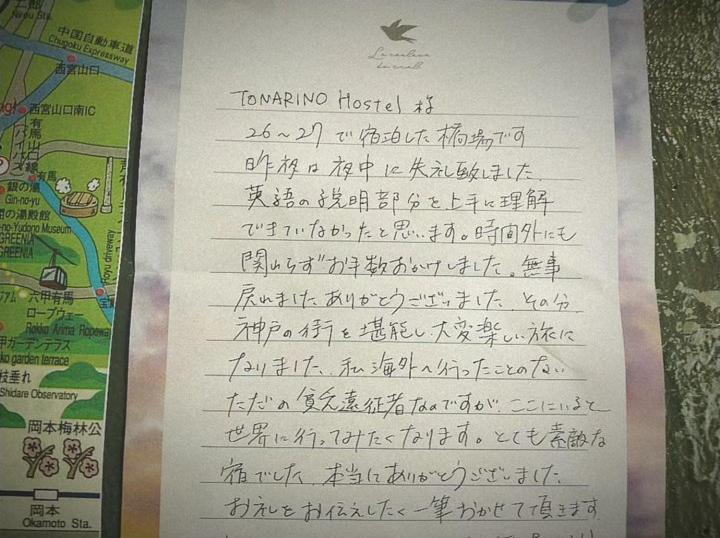 二郎
Nirou Sta.
中国自動車道
Chugoku Expressway
西宮山口
西宮山口南IC
有馬
銀の湯
Gin-no-yu
の湯殿館
o-Yudono Museum
GREENIA
GREENIA
六甲有馬
ロープウェー
Rokko Arima Ropeway
甲ガーデンテラス
ko garden terrace
枝垂れ
Shidare Observatory
岡本梅林公
岡本
Okamoto Sta.
TONARINO Hostel 様
26〜27 で宿泊した橋場です
昨夜は夜中に失礼致しました.
英語の説明部分を上手に理解
できていなかったと思います。時間外にも
関わらずお手数おかけしました。無事
戻れました ありがとうございました. その分.
神戸の街を堪能し大変楽しい旅に
なりました. 私 海外へ行ったことのない
ただの 遠征者なのですが. ここにいると
世界に行ってみたくなります。とても素敵な
宿でした. 本当にありがとうございました
お礼をお伝えしたく一筆おかせて頂きます